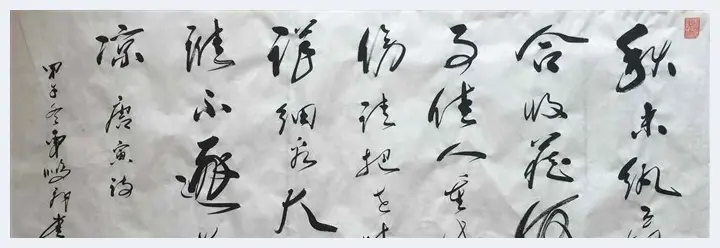 秋来纨扇
合收藏何
事佳人重
伤请把世
详细看大
谁不逐
凉
唐寅诗
甲午冬
书